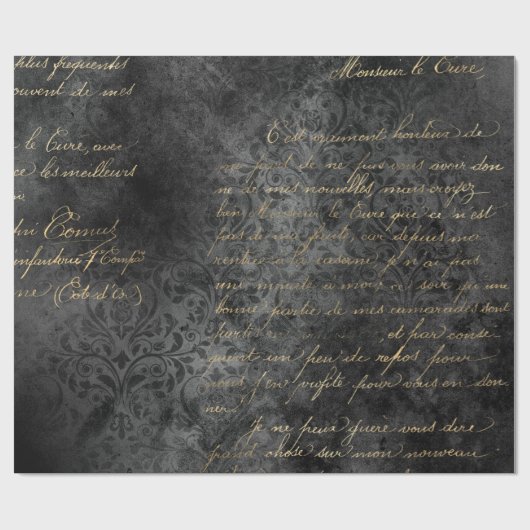 plus fréquentes
ouvent de mes
le Cure, avec
ce les meilleurs
Comus
Infanterie 7 Comp
ne (Côte d'or)
Monsieur le Cure,
C'est vraiment honteux de
ma part de ne pas vous avoir don
ne de mes nouvelles, mais croyez
bien Monsieur le Cure que ce n'est
pas de ma faute, car depuis ma
rentrée à la caserne je n'ai pas
une minute à moi ce soir que une
bonne partie de mes camarades sont
partis en et par conse
quent un peu de repos pour
nous j'en profite pour vous en don
ner.
Je ne peux guère vous dire
grand chose sur mon nouveau